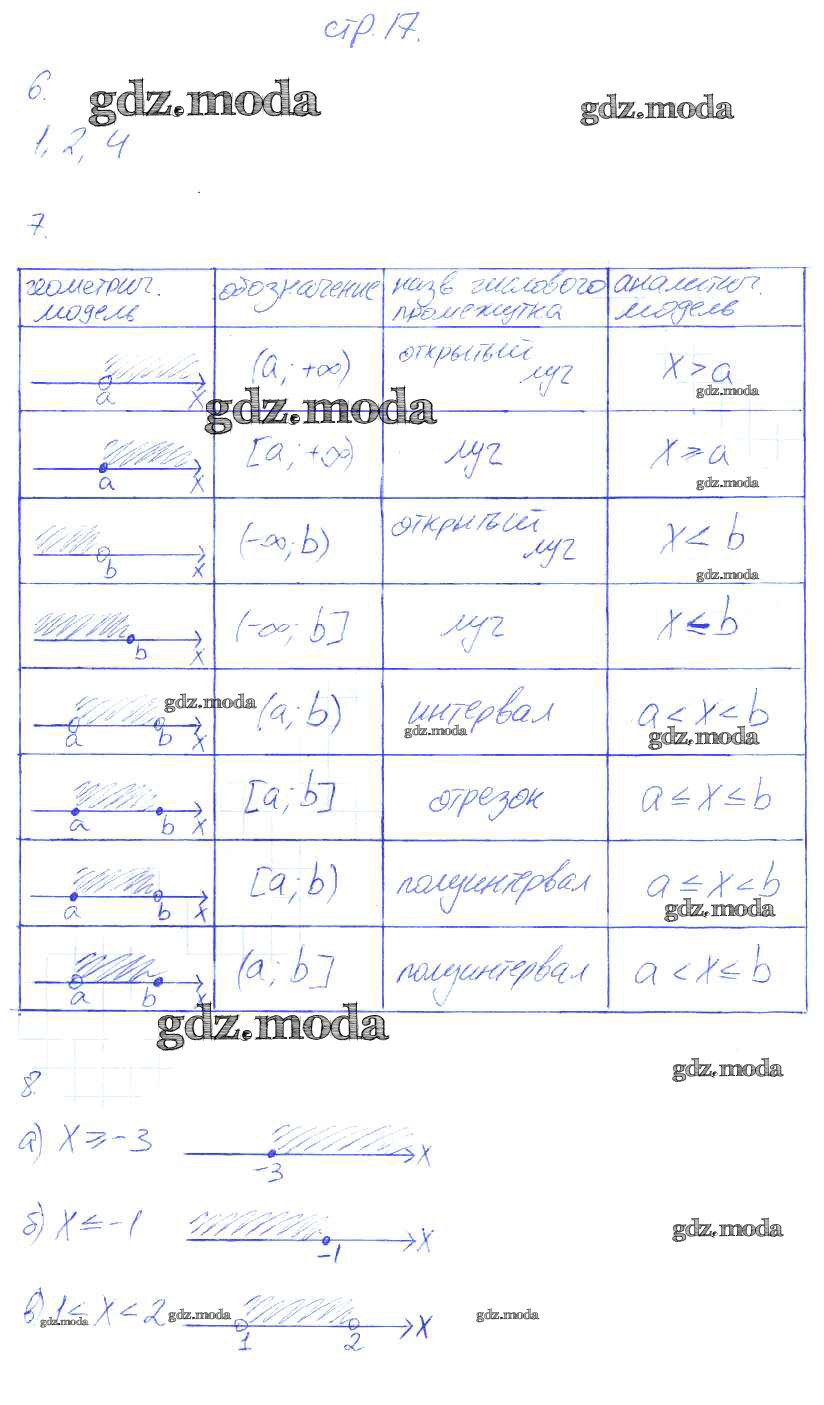 стр. 17.
6.
gdz.moda
gdz.moda
1, 2, 4
7.
геометрич. модель
обозначение
назв числового промежутка
аналитич. модель
a X
(a; +∞)
открытый луч
X > a
gdz.moda
gdz.moda
a X
[a; +∞)
луч
X ≥ a
gdz.moda
b X
(-∞; b)
открытый луч
X < b
gdz.moda
b X
(-∞; b]
луч
X ≤ b
gdz.moda
a b X
(a; b)
интервал
gdz.moda
a < X < b
gdz.moda
a b X
[a; b]
отрезок
a ≤ X ≤ b
a b X
[a; b)
полуинтервал
a ≤ X < b
gdz.moda
a b X
(a; b]
полуинтервал
a < X ≤ b
gdz.moda
gdz.moda
8.
а) X ≥ -3
-3 X
б) X ≤ -1
-1 X
gdz.moda
в) 1 ≤ X < 2
1 2 X
gdz.moda
gdz.moda
gdz.moda